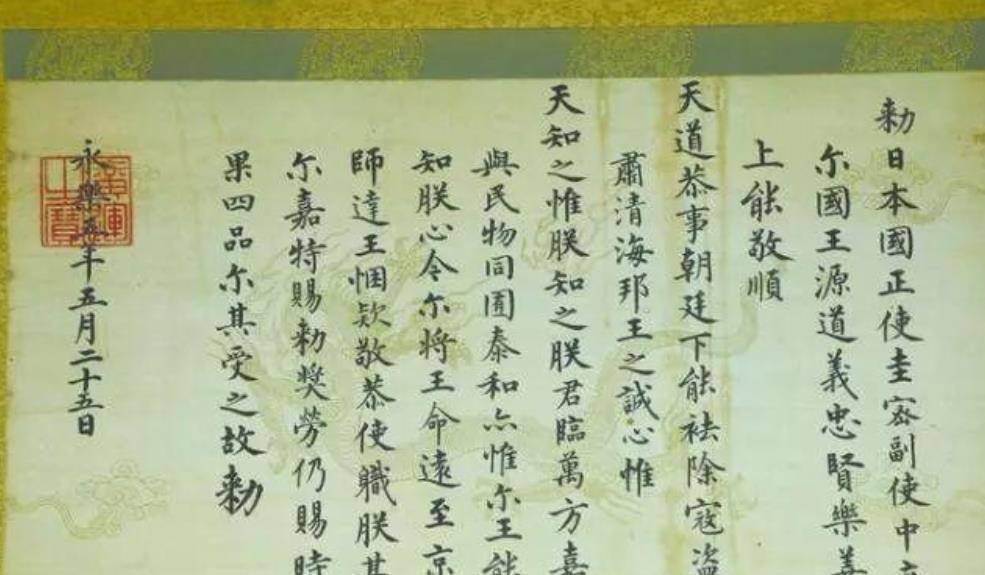 勑日本國正使圭密副使中
尓國王源道義忠賢樂善
上能敬順
天道恭事朝廷下能祛除寇盗
肅清海邦王之誠心惟
天知之惟朕知之朕君臨萬方嘉
與民物同囿泰和亦惟尓王能
知朕心今尓將王命遠至京
師達王悃欵敬恭使職朕甚
尓嘉特賜勑奬勞仍賜時
果四品尓其受之故勑
永樂五年五月二十五日
廣運之寶